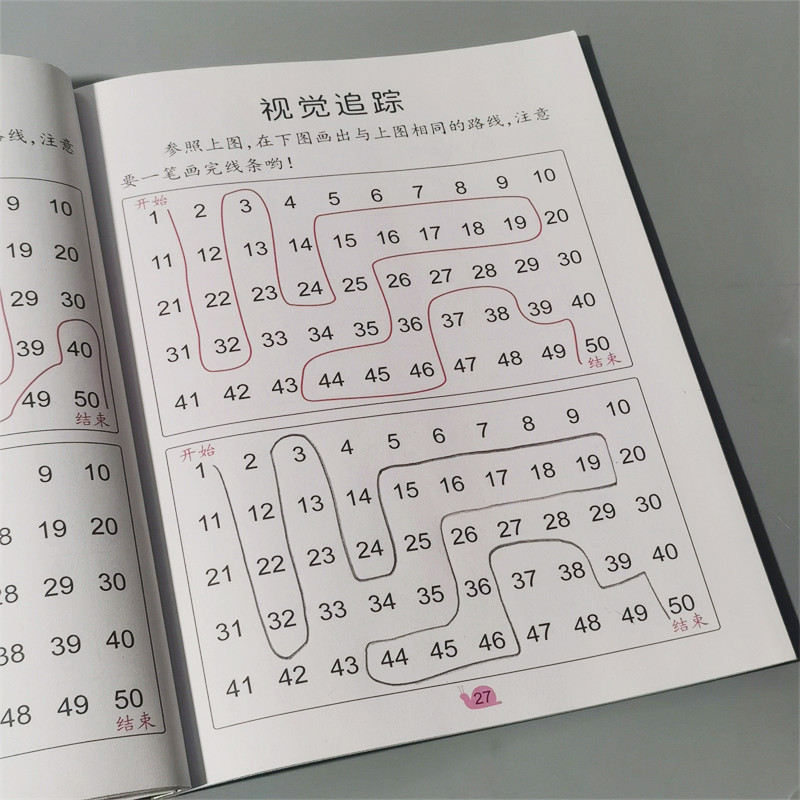 线,注意
9 10
19 20
29 30
39 40
49 50
结束
9 10
19 20
29 30
38 39 40
48 49 50
结束
视觉追踪
参照上图,在下图画出与上图相同的路线,注意
要一笔画完线条哟!
开始
1 2 3 4 5 6 7 8 9 10
11 12 13 14 15 16 17 18 19 20
21 22 23 24 25 26 27 28 29 30
31 32 33 34 35 36 37 38 39 40
41 42 43 44 45 46 47 48 49 50
结束
开始
1 2 3 4 5 6 7 8 9 10
11 12 13 14 15 16 17 18 19 20
21 22 23 24 25 26 27 28 29 30
31 32 33 34 35 36 37 38 39 40
41 42 43 44 45 46 47 48 49 50
结束
27